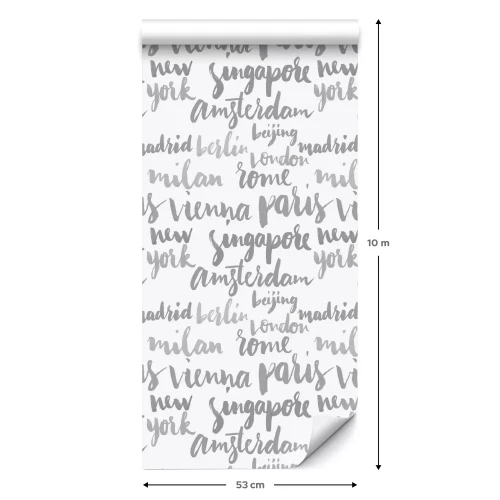 vienna paris
new singapore new
york amsterdam york
madrid berlin beijing madrid
london
milan rome mil
s vienna paris vi
new singapore new
york amsterdam york
madrid berlin beijing madrid
london
milan rome mil
s vienna paris vi
new singapore new
york amsterdam
beijing
10 m
53 cm